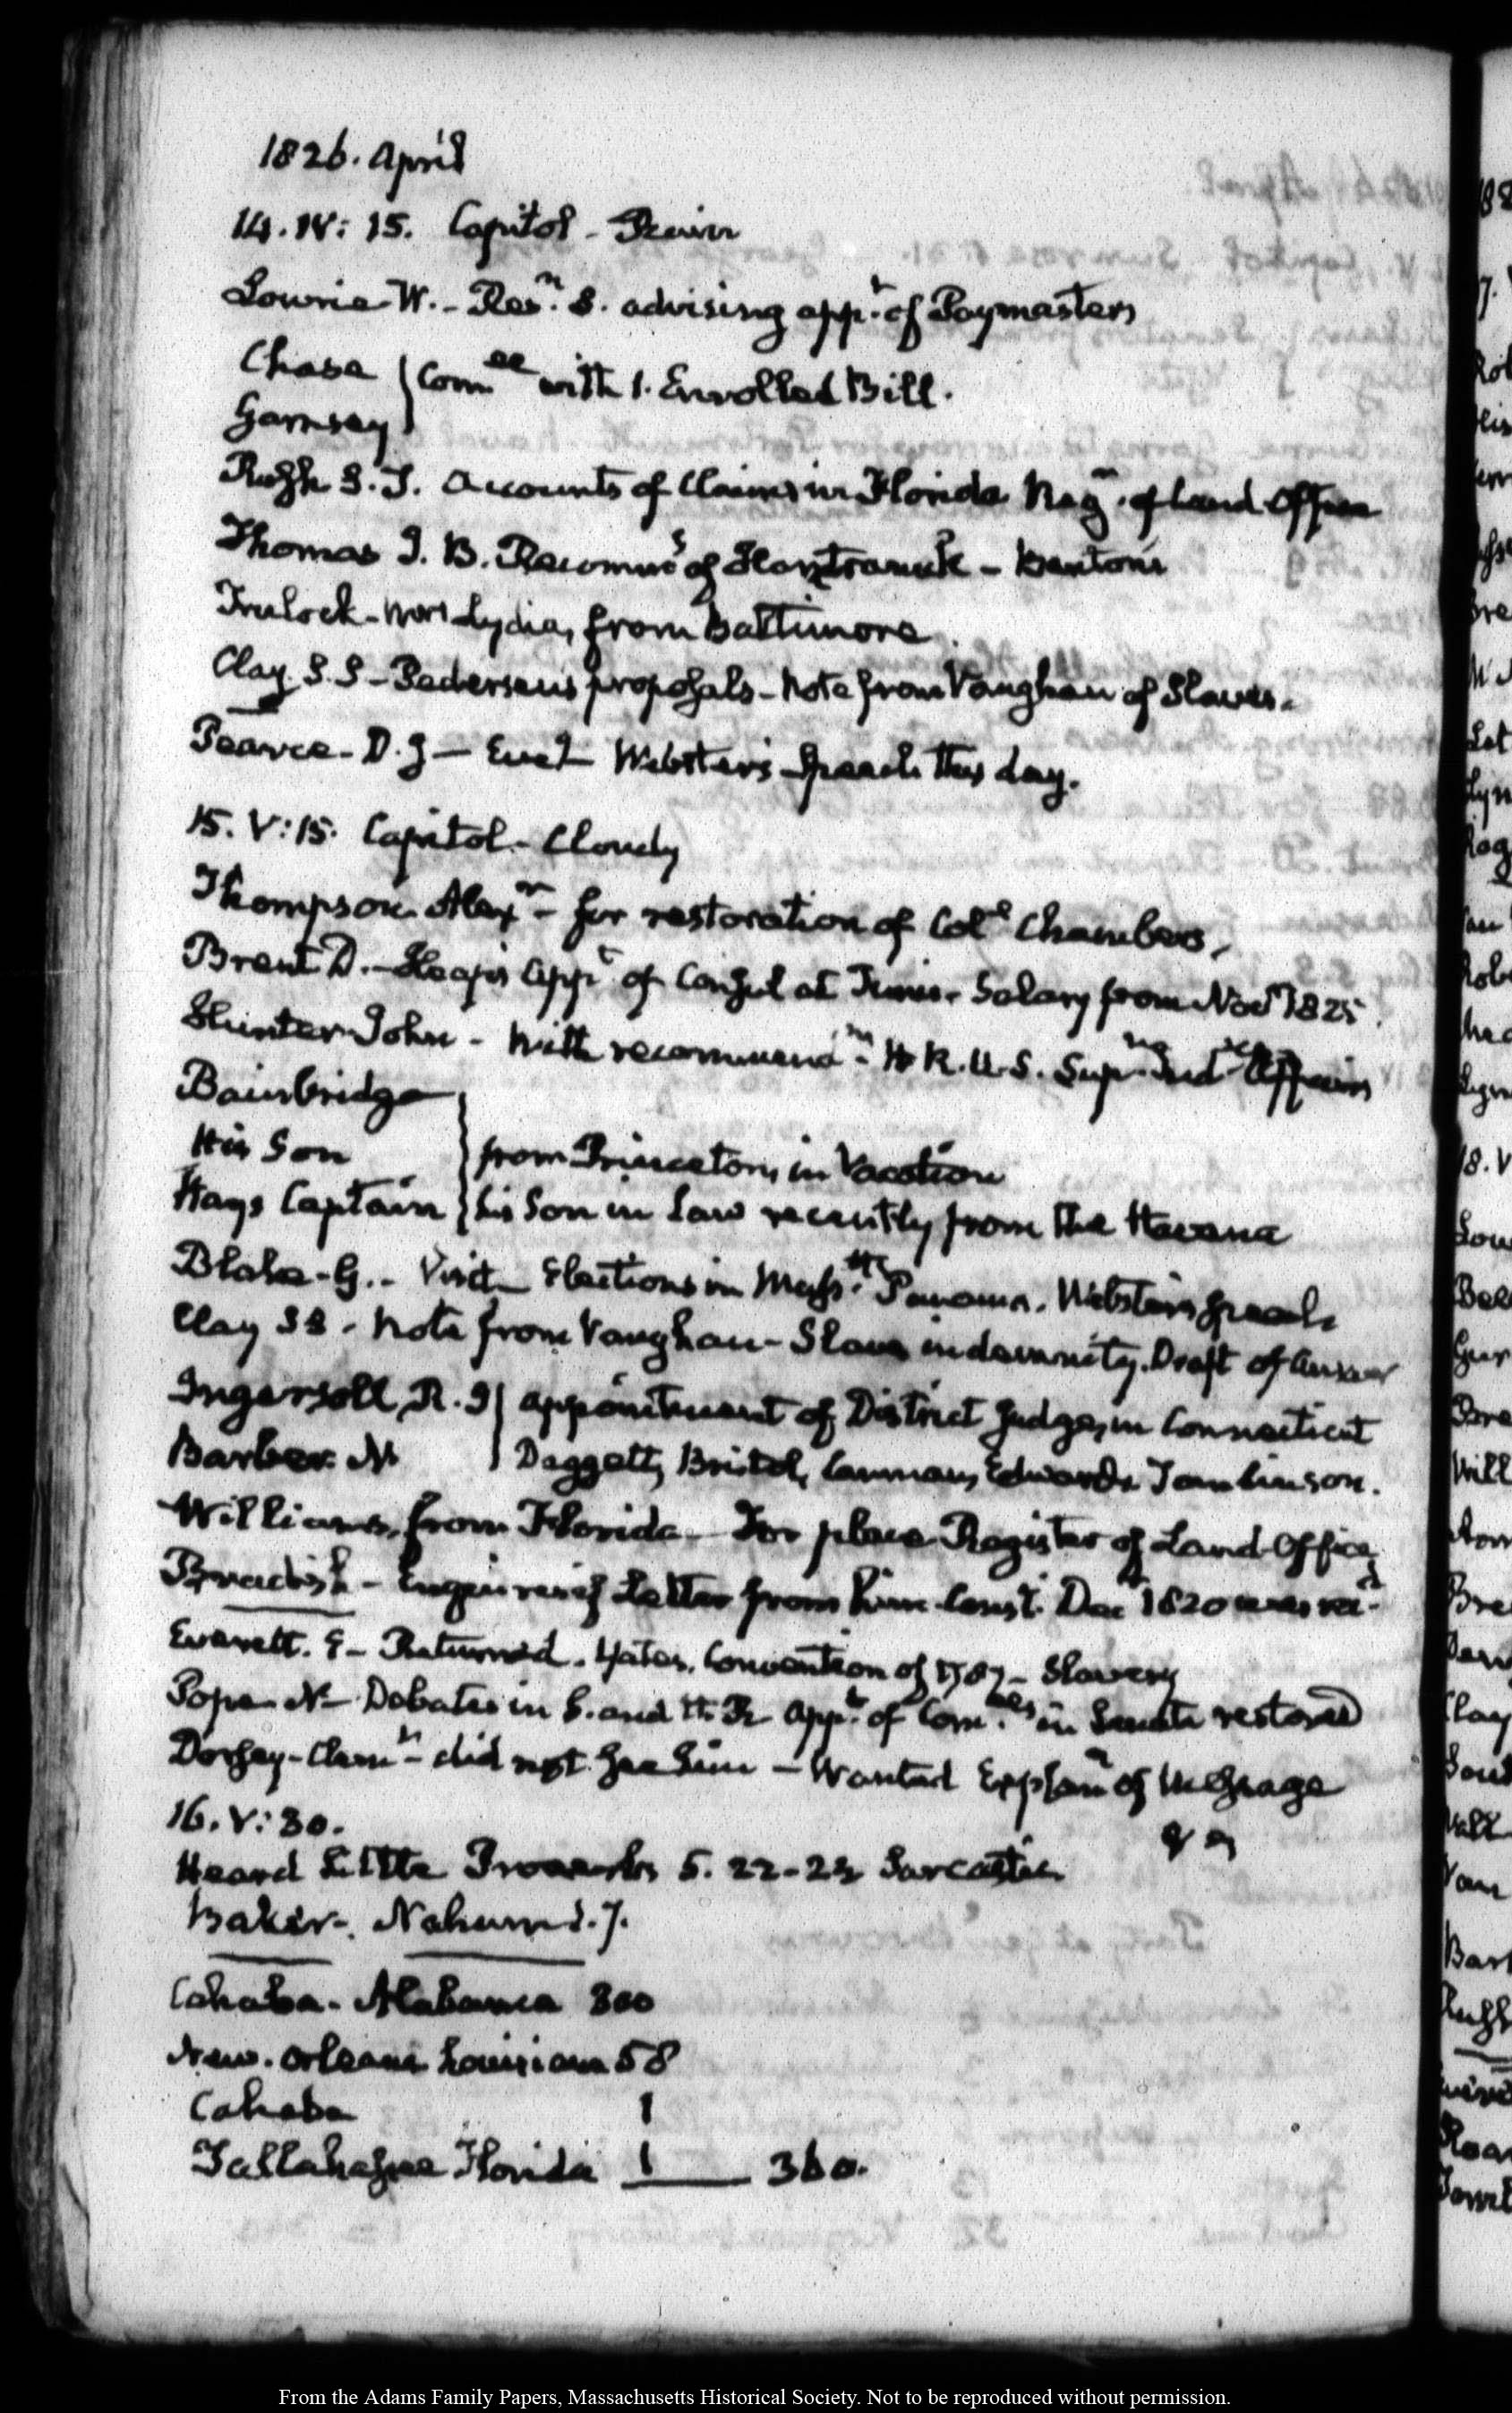 1826. April
14. IV: 15. Capitol - Rain
Lowrie W. - Resn. S. advising appt. of Paymasters
Chase } Comee with 1. Enrolled Bill.
Garnsey }
Rush S.T. Accounts of Claims in Florida Reg of Land Office
Thomas J. B. Recomms of Hantramck - Benton's
Trulock - Lydia, from Baltimore
Clay S.S - Pedersen's proposals - Note from Vaughan of Slaves.
Pearce - D. J - Eveg Webster's speech this day.
15. V: 15. Capitol - Cloudy
Thompson Alexr - for restoration of Coll Chambers,
Brent D. - Heap's appt of Consul at Tunis. Salary from Novr 1825.
Hunter John - With recommendn H R. U.S. Sup Ind Affairs
Bainbridge
His Son } from Princeton, in Vacation
Hays Captain } his Son in Law recently from the Havana
Blake - G. - Visit - Elections in Masstts Panama. Webster's speech
Clay S S. Note from Vaughan - Slave indemnity. Draft of answer
Ingersoll, R. I } appointment of District Judge, in Connecticut
Barber N } Daggett, Bristol, Lanman, Edwards Tomlinson.
Williams, from Florida - For place Register of Land Office
Bradish - Enquires if Letter from him Const. Dec 1820 was recd.
Everett. E - Returned. Yates. Convention of 1787 - Slavery
Pope N - Debates in S. and H. R. Appt. of Comees in Senate restored
Dorsey - Clemt - did not see him - Wanted Explann of Message
16. V: 30.
Heard Little Proverbs 5. 22-23 Sarcastic
Baker - Nahum 1. 7.
Cahaba - Alabama 300
New. Orleans Louisiana 58
Cahaba 1
Tallahassee Florida 1 360.
From the Adams Family Papers, Massachusetts Historical Society. Not to be reproduced without permission.